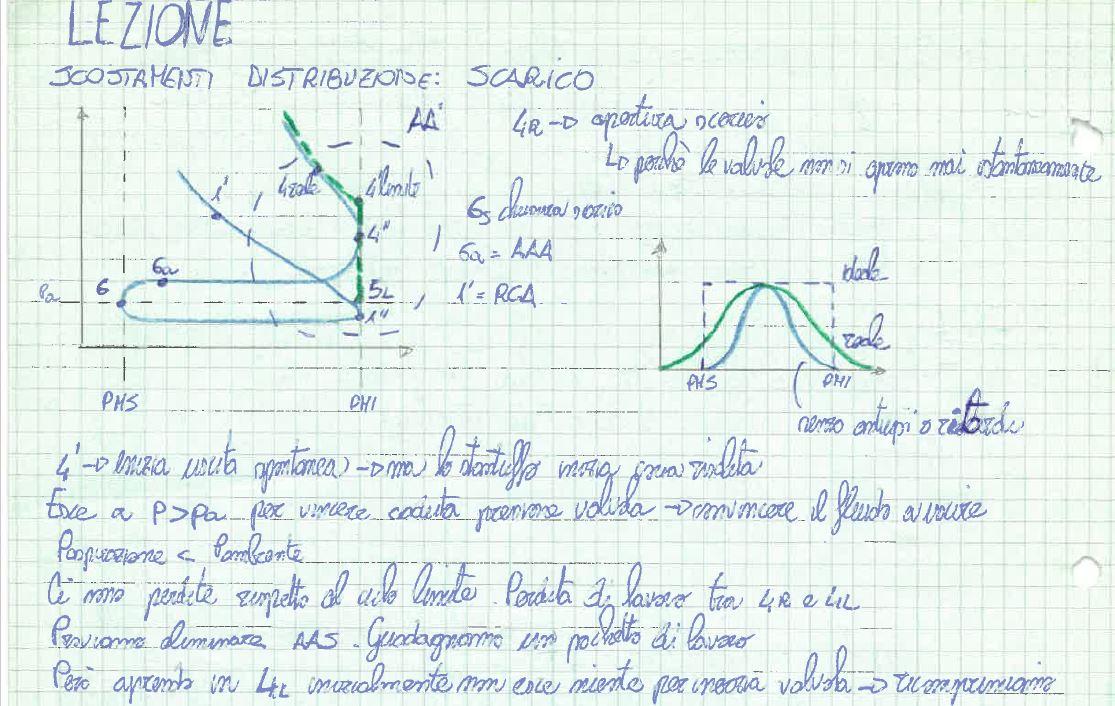 LEZIONE
SCOSTAMENTI DISTRIBUZIONE: SCARICO
AA'
4R → apertura scarico
↳ perchè le valvole non si aprono mai istantaneamente
4reale
4limite
1'
4"
6s chiusura scarico
6a = AAA
1' = RCA
6
6a
Pa
5L
1"
PMS
PMI
ideale
reale
PMS
PMI
senza anticipi o ritardi
4' → Inizia uscita spontanea → ma lo stantuffo inizia risalita
Esce a P>Pa per vincere caduta pressione valvola → convincere il fluido a uscire
Paspirazione < Pambiente
Ci sono perdite rispetto al ciclo limite. Perdita di lavoro tra 4R e 4L
Proviamo eliminare AAS. Guadagnamo un pochetto di lavoro
Però aprendo in 4L inizialmente non esce niente per inerzia valvola → ricomprimiamo